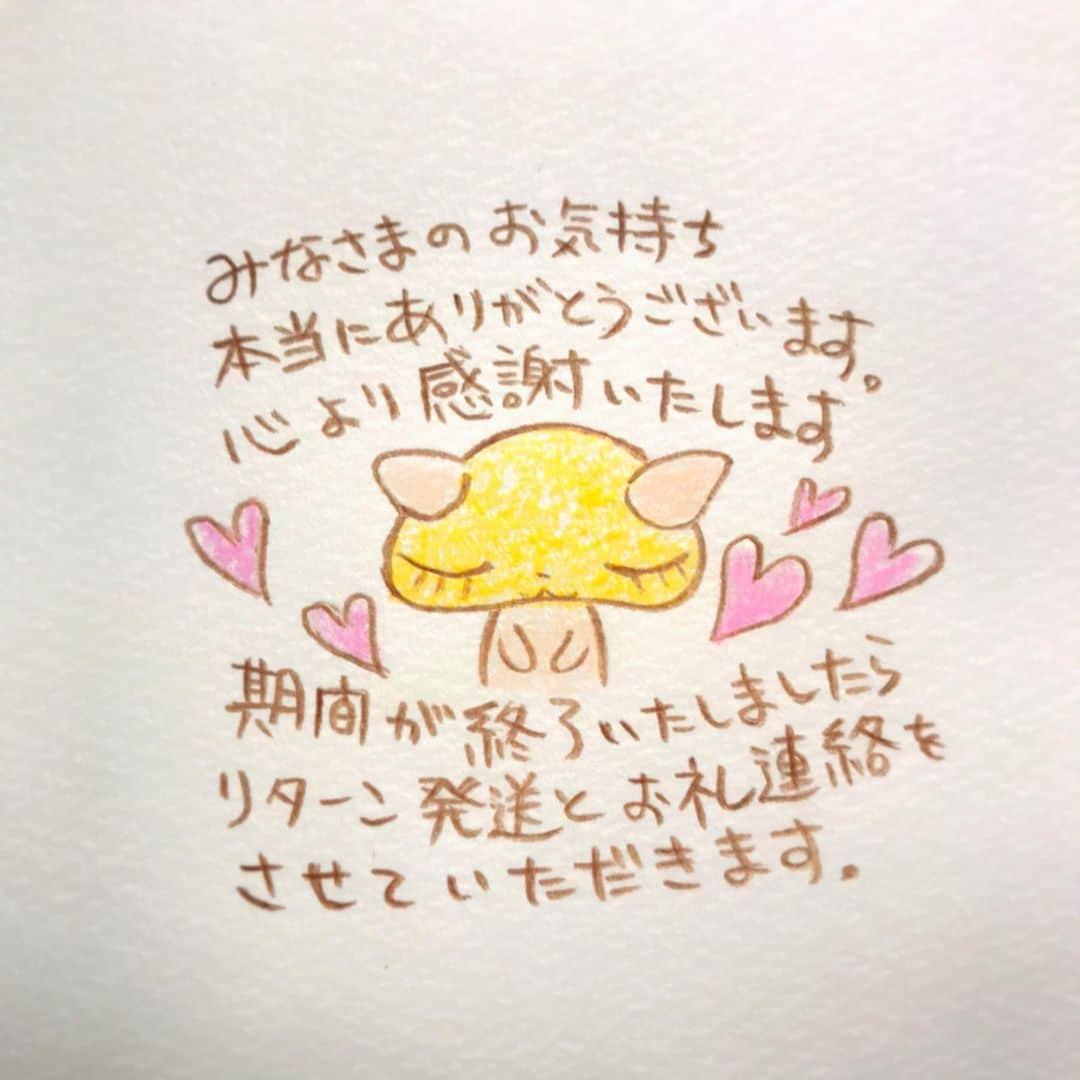 みなさまのお気持ち
本当にありがとうございます。
心より感謝いたします
期間が終了いたしましたら
リターン発送とお礼連絡を
させていただきます。